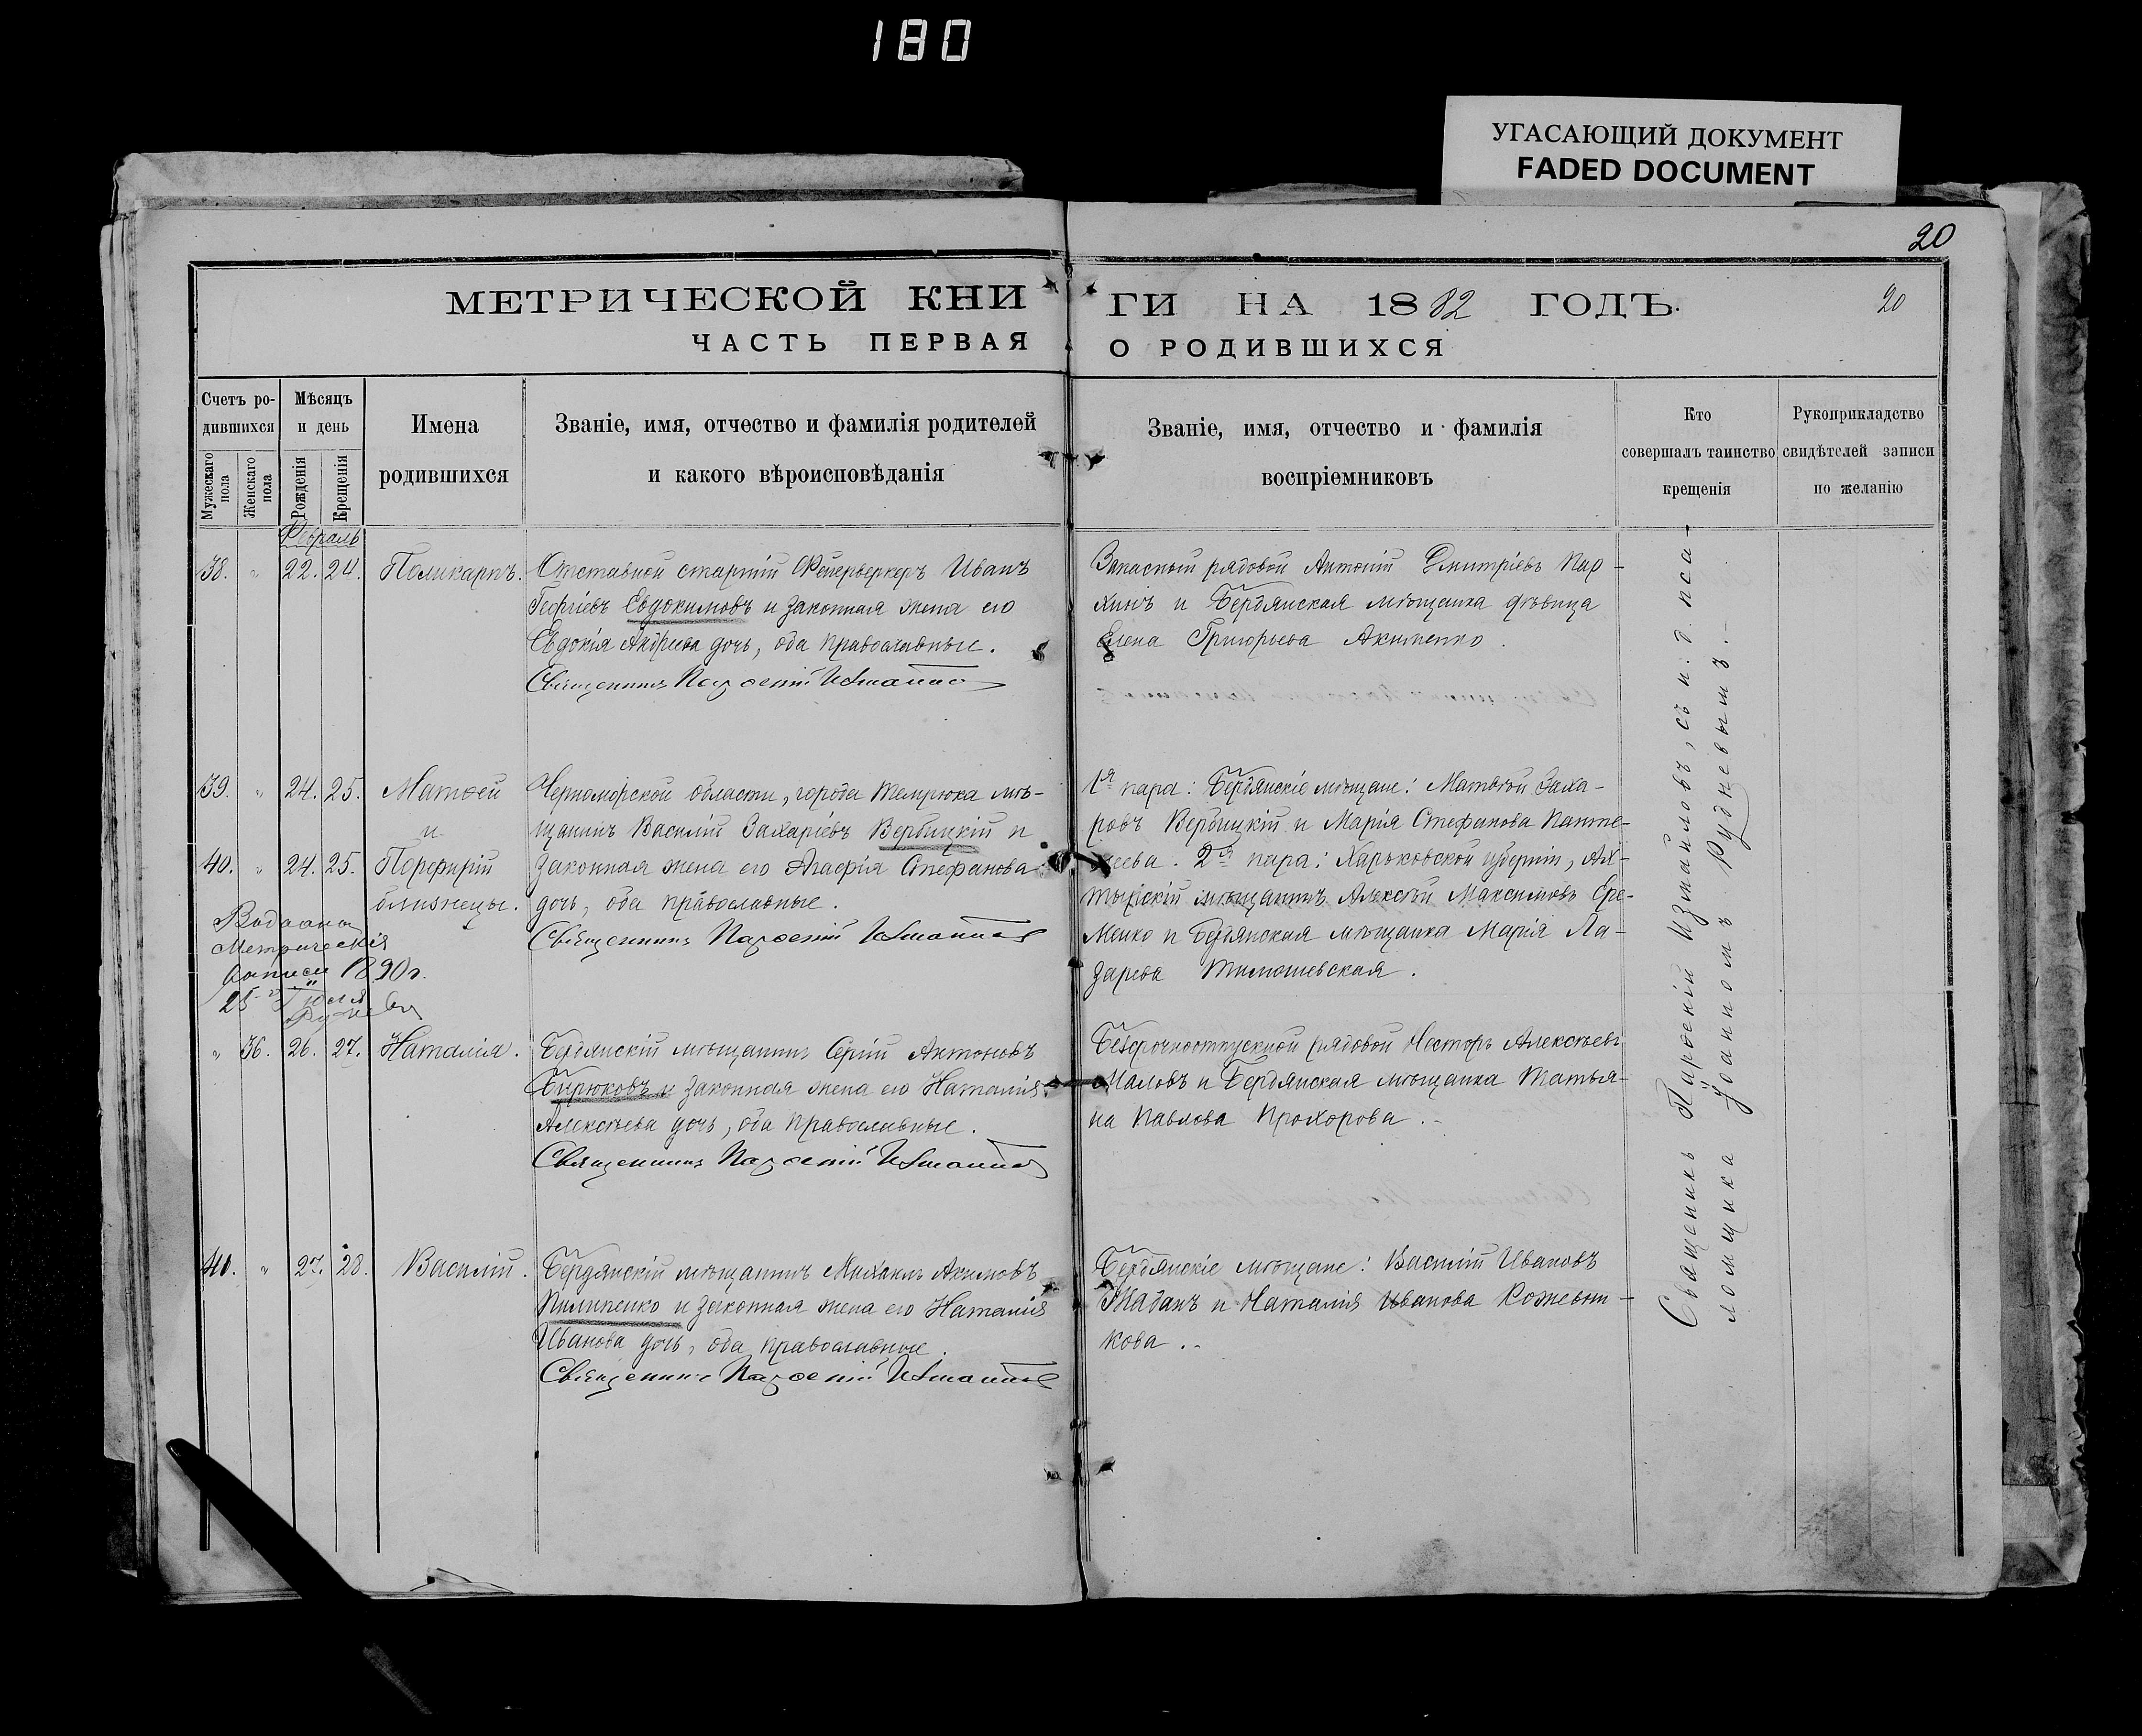 180
УГАСАЮЩИЙ ДОКУМЕНТ
FADED DOCUMENT
20
МЕТРИЧЕСКОЙ КНИ
ГИ НА 1882 ГОДЪ.
20
ЧАСТЬ ПЕРВАЯ
О РОДИВШИХСЯ
Счетъ ро-
дившихся
Мужескаго пола
Женскаго пола
Мѣсяцъ
и день
Рожденія
Крещенія
Имена
родившихся
Званіе, имя, отчество и фамилія родителей
и какого вѣроисповѣданія
Званіе, имя, отчество и фамилія
воспріемниковъ
Кто
совершалъ таинство
крещенія
Рукоприкладство
свидѣтелей записи
по желанію
Февраль
38. " 22. 24. Поликарпъ.
Отставной старшій Фейерверкеръ Иванъ
Георгіевъ Евдокимовъ и законная жена его
Евдокія Андреева дочь, оба православные.
Священникъ Парѳеній Измаиловъ
Запасной рядовой Антоній Дмитріевъ Пар-
хинъ и Бердянская мѣщанка дѣвица
Елена Григорьева Акименко.
39. " 24. 25. Матѳей
и
40. " 24. 25. Порфирій
близнецы.
Черноморской области, города Темрюка мѣ-
щанинъ Василій Захаріевъ Вербицкій и
законная жена его Агафія Стефанова
дочь, оба православные.
Священникъ Парѳеній Измаиловъ
1я пара: Бердянскіе мѣщане: Матѳей Заха-
ровъ Вербицкій и Марія Стефанова Панте-
леева. 2я пара: Харьковской губерніи, Ах-
тырскій мѣщанинъ Алексѣй Максимовъ Ере-
менко и Бердянская мѣщанка Марія Ла-
зарева Тимошевская.
Выдана
Метрическія
выписи 1890 г.
25 Іюля
" 36. 26. 27. Наталія.
Бердянскій мѣщанинъ Сергій Антоновъ
Бирюковъ и законная жена его Наталія
Алексѣева дочь, оба православные.
Священникъ Парѳеній Измаиловъ
Безсрочноотпускной рядовой Несторъ Алексѣевъ
Маловъ и Бердянская мѣщанка Татья-
на Павлова Прохорова.-
41. " 27. 28. Василій.
Бердянскій мѣщанинъ Михаилъ Акимовъ
Пилипенко и законная жена его Наталія
Иванова дочь, оба православные.
Священникъ Парѳеній Измаиловъ
Бердянскіе мѣщане: Василій Ивановъ
Жаданъ и Наталія Иванова Кожевни-
кова.-
Священникъ Парѳеній Измаиловъ, съ и. д. пса-
ломщика Іоанномъ Рудневымъ.-